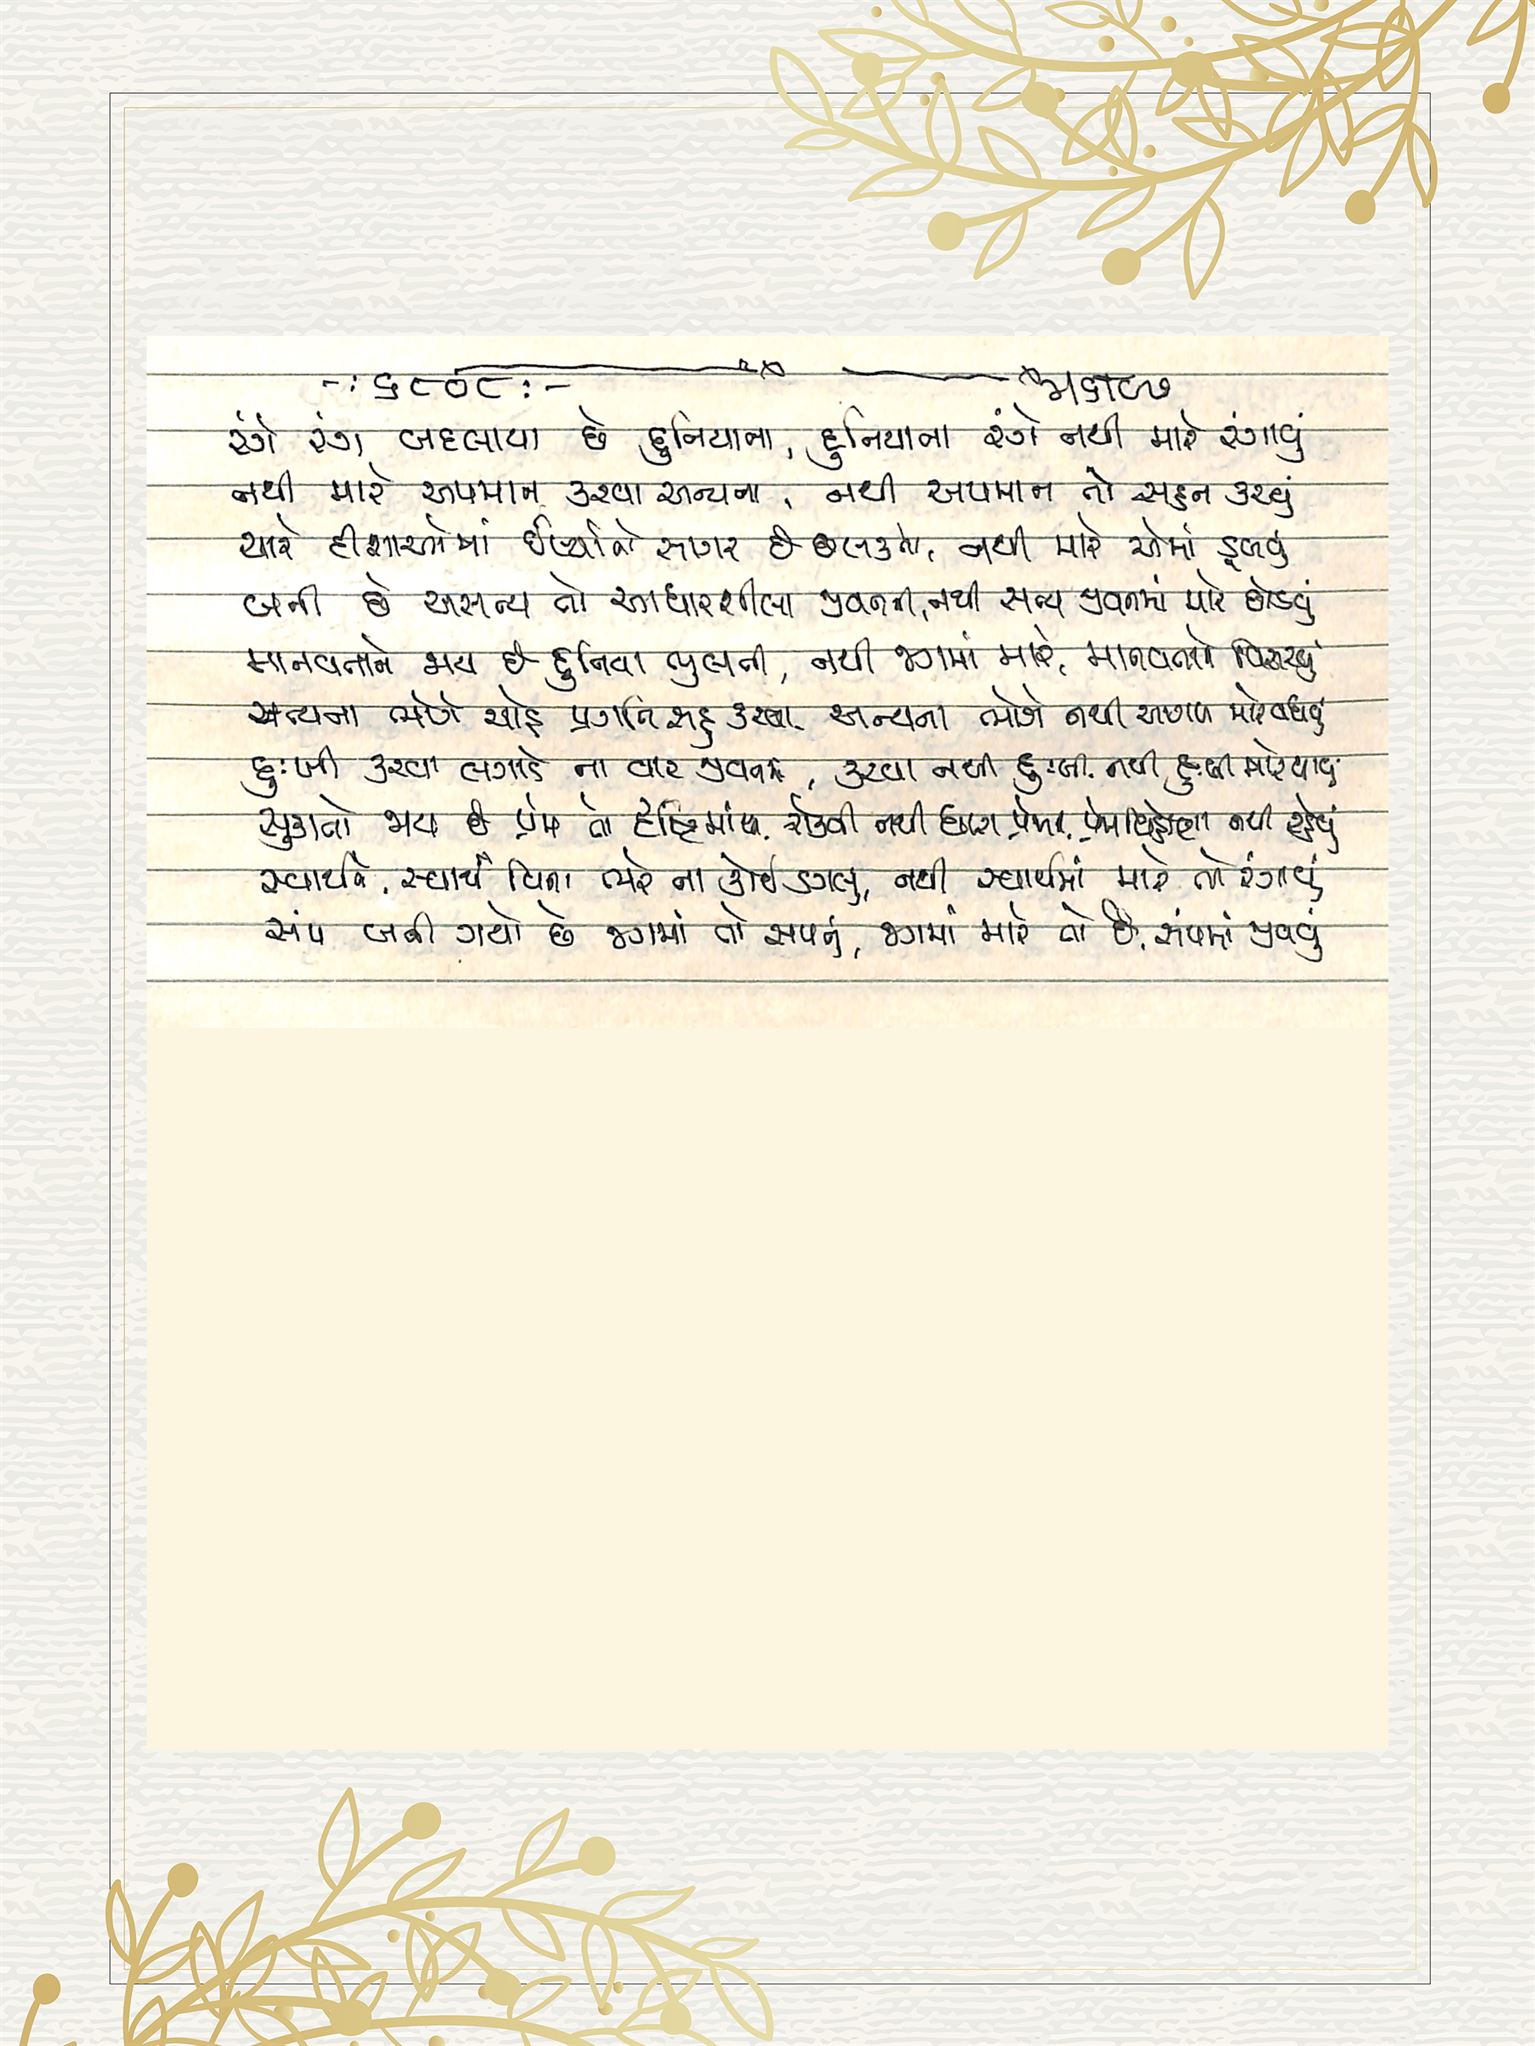 -: ૬૮૦૮ :-
રંગે રંગ બદલાયા છે દુનિયાના, દુનિયાના રંગે નથી મારે રંગાવું
નથી મારે અપમાન કરવા અન્યના, નથી અપમાન તો સહન કરવું
ચારે દીશાઓમાં ઈર્ષ્યાનો સાગર છે છલકતો, નથી મારે એમાં ડૂબવું
બની છે અસત્ય તો આધારશીલા જીવનની, નથી સત્ય જીવનમાં મારે છોડવું
માનવતાને ભય છે દુનિયા ભુલતી, નથી જગમાં મારે, માનવતાને વિસરવું
અન્યના ભોગે ચાહે પ્રગતિ સહુ કરવા, અન્યના ભોગે નથી આગળ મારે વધવું
દુઃખી કરવા લગાડે ના વાર જીવનમાં, કરવા નથી દુઃખી, નથી દુઃખી મારે થાવું
સુકાતો ભય છે પ્રેમ તો દૃષ્ટિમાંથી, રોકવી નથી ધારા પ્રેમની, પ્રેમવિહોણા નથી રહેવું
સ્વાર્થને, સ્વાર્થ વિના ભરે ના કોઈ ડગલું, નથી સ્વાર્થમાં મારે તો રંગાવું
સંપ બની ગયો છે જગમાં તો સપનું, જગમાં મારે તો છે, સંપમાં જીવવું